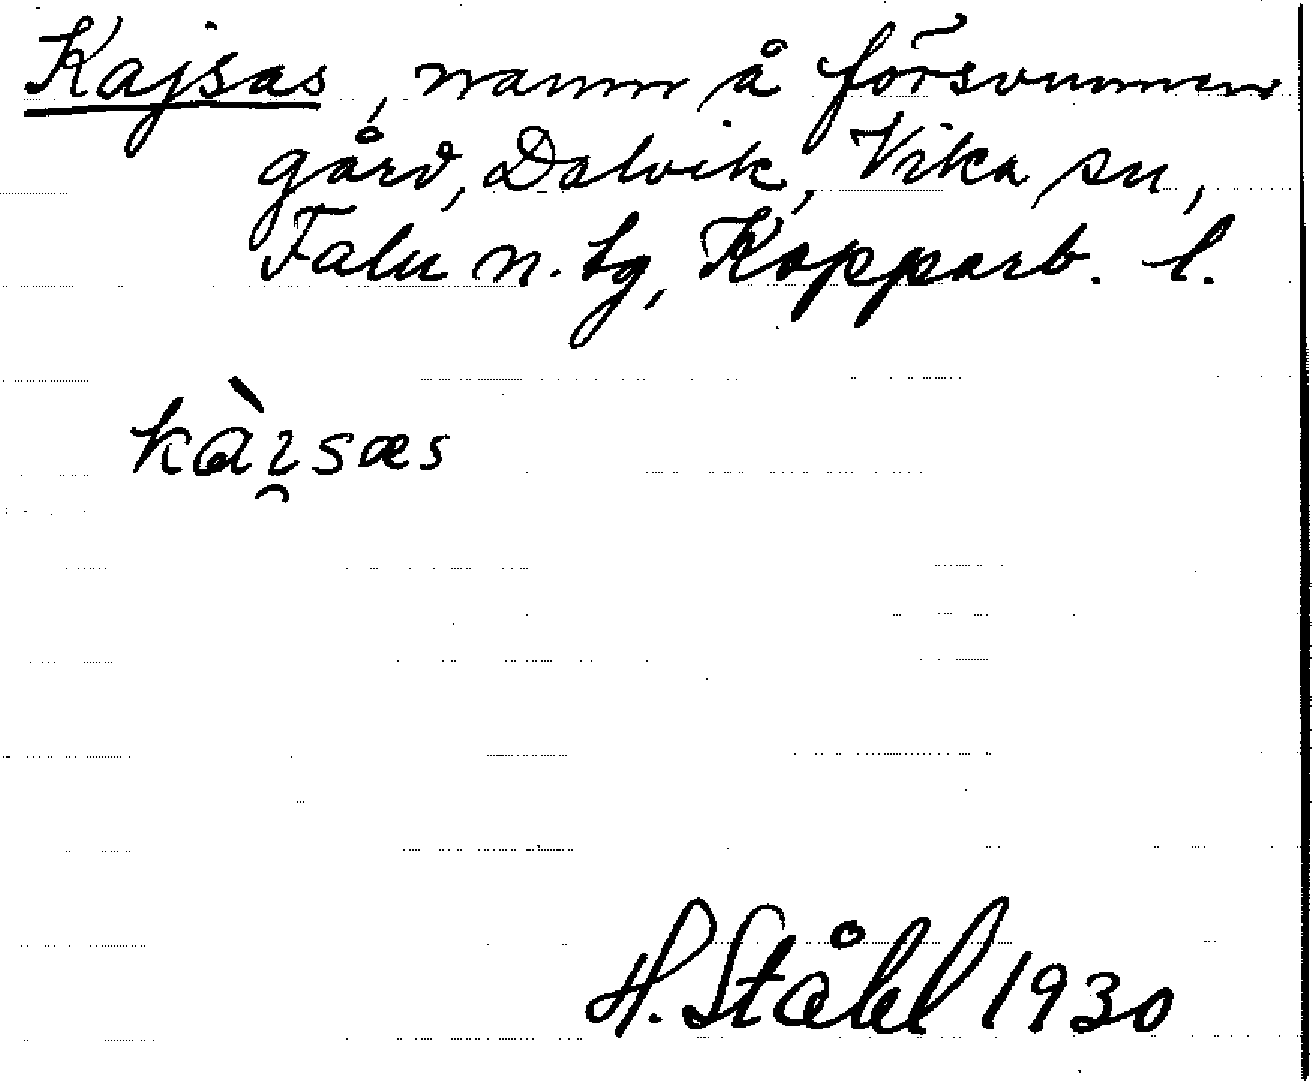 Kajsas, namn å försvunnen
gård, Dalvik, Vika sn,
Falu n. tg, Kopparb. l.
kàı̯sæs
H. Ståhl 1930